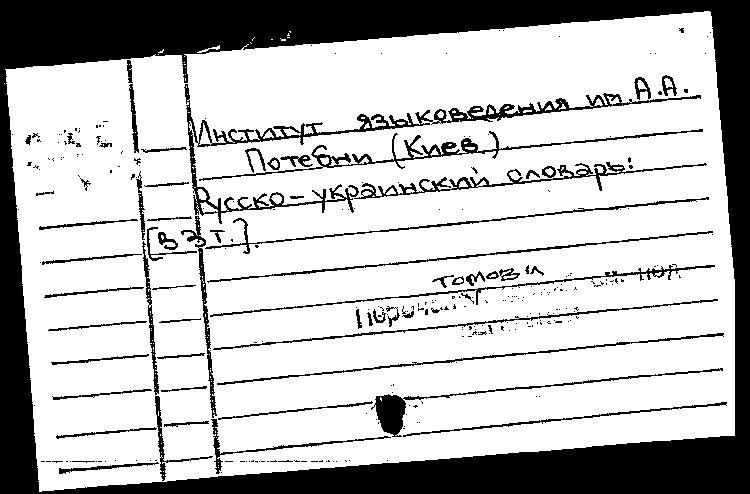 Институт языковедения им. А.А.
Потебни (Киев)
Русско-украинский словарь:
[в 3 т.].